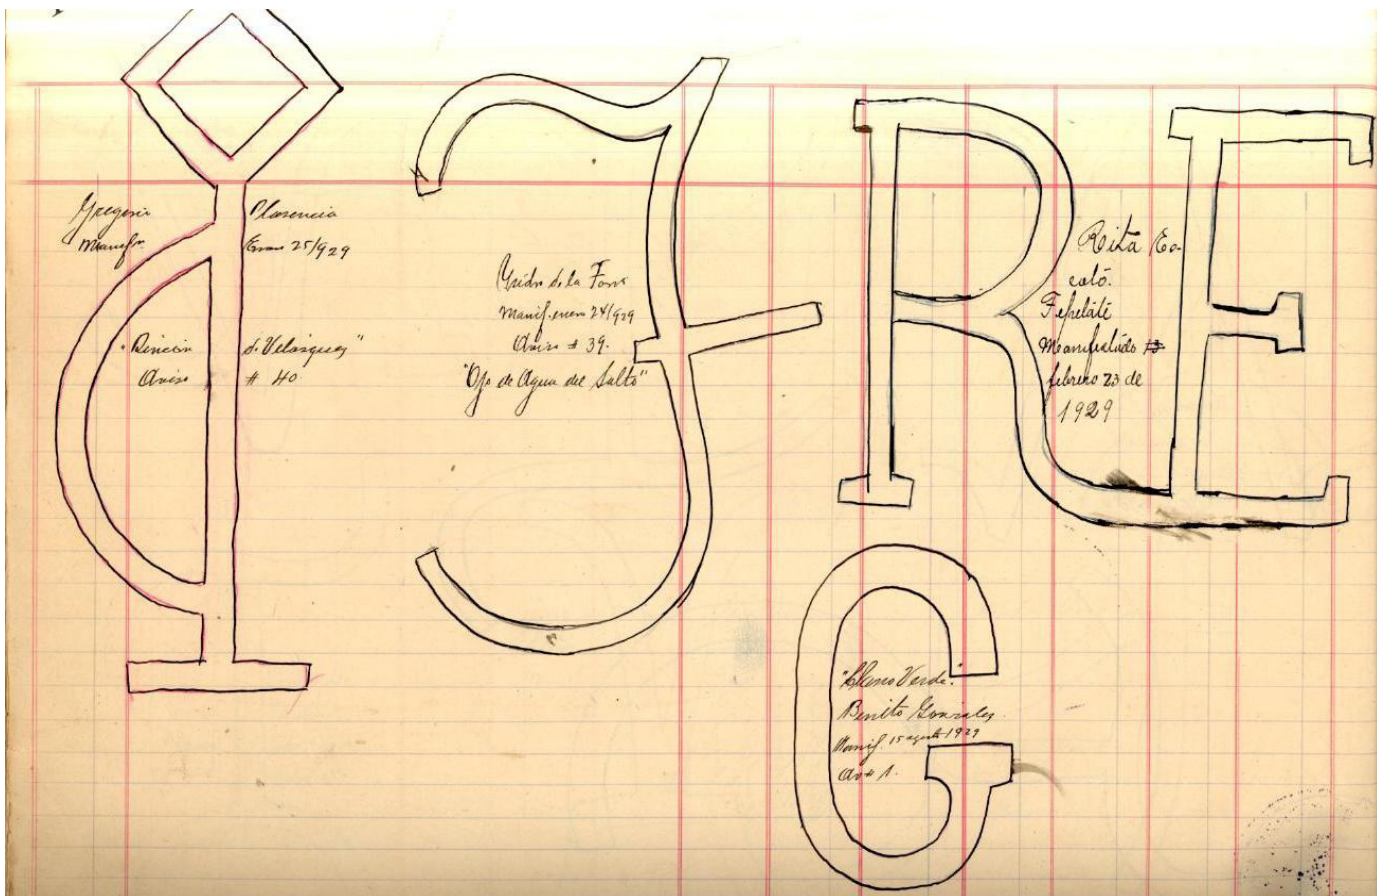 Gregorio Plasencia
Manifn. Enero 25/929
"Rincón de Velasquez"
Aviso # 40.
Ysidro de la Torre
Manif. enero 24/929
Aviso # 39.
"Ojo de Agua del Salto"
RE
Rita Es-
cató.
Tepelate
Manifestado 13
febrero 23 de
1929
G
"Llano Verde."
Benito Gonzales
Manif. 15 agosto 1929
Av # 1.